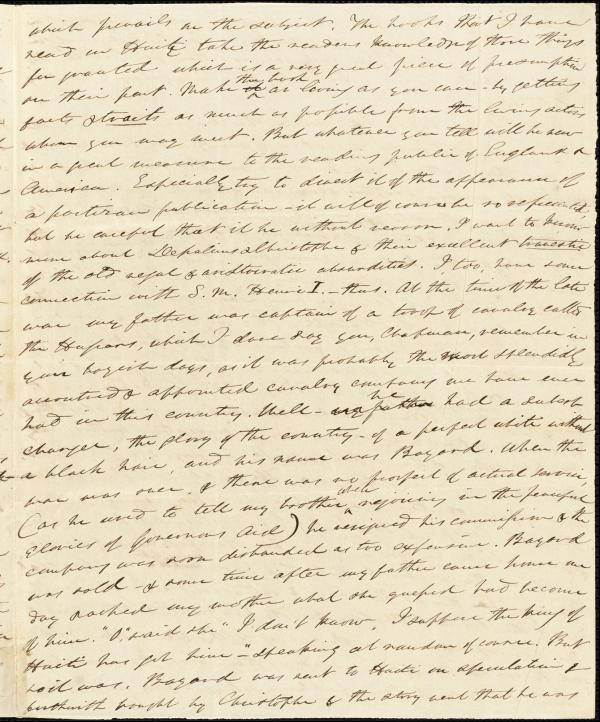 which prevails on the subject. The books that I have
read on Haiti take the readers knowledge of those things
for granted which is a very great piece of presumption
on their part. Make this book as living as you can - by getting
facts & traits as much as possible from the living actors
whom you may meet. But whatever you tell will be new
in a great measure to the reading public of England &
America. Especially try to divest it of the appearance of
a partizan publication - it will of course be so represented,
but be careful that it be without reason. I want to know
more about Dessalines & Christophe & their excellent travestie
of the old regal & aristocratic absurdities. I, too, have some
connection with S. M. Henri I. - thus. At the time of the late
war my father was captain of a troop of cavalry called
the Hussars, which I dare say you, Chapman, remember in
your boyish days, as it was probably the most splendidly
accoutred & appointed cavalry company we have ever
had in this country. Well - he had a superb
charger, the glory of the country - of a perfect white without
a black hair, and his name was Bayard. When the
war was over & there was no prospect of actual service,
(as he used to tell my brother when rejoicing in the peaceful
glories of Governors Aid) he resigned his commission & the
company was soon disbanded as too expensive. Bayard
was sold - & some time after my father came home one
day & asked my mother what she guessed had become
of him. "O," said she "I don't know, I suppose the King of
Haiti has got him" - speaking at random of course. But
so it was. Bayard was sent to Haiti on speculation &
forthwith bought by Christophe & the story went that he was